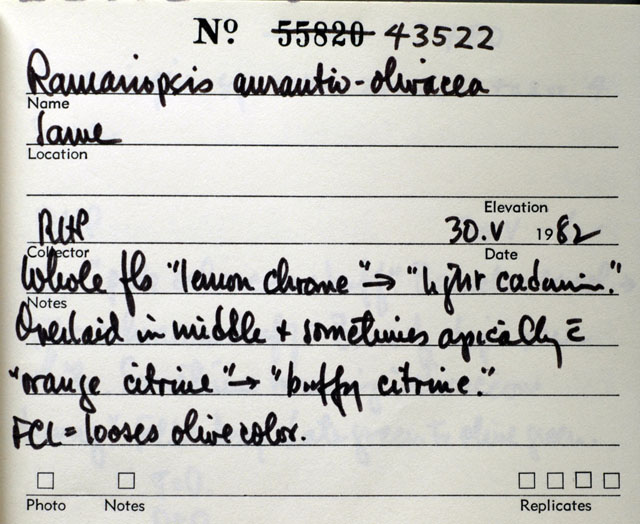 Nº 55820 43522
Ramariopsis aurantio-olivacea
Name
Same
Location
Elevation
RHP 30.V 1982
Collector Date
Whole fbs "lemon chrome" → "light cadmium."
Notes
Overlaid in middle + sometimes apically c̄
"orange citrine" → "buffy citrine."
FCL = looses olive color.
Photo Notes Replicates